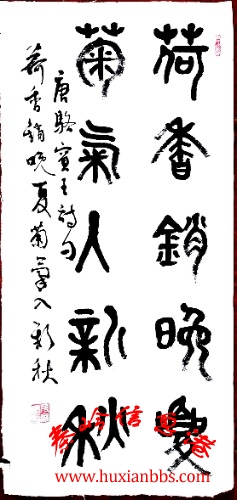 荷香銷晚夏
菊氣入新秋
唐駱賓王詩句
荷香銷晚夏菊氣入新秋
www.huxianbbs.com